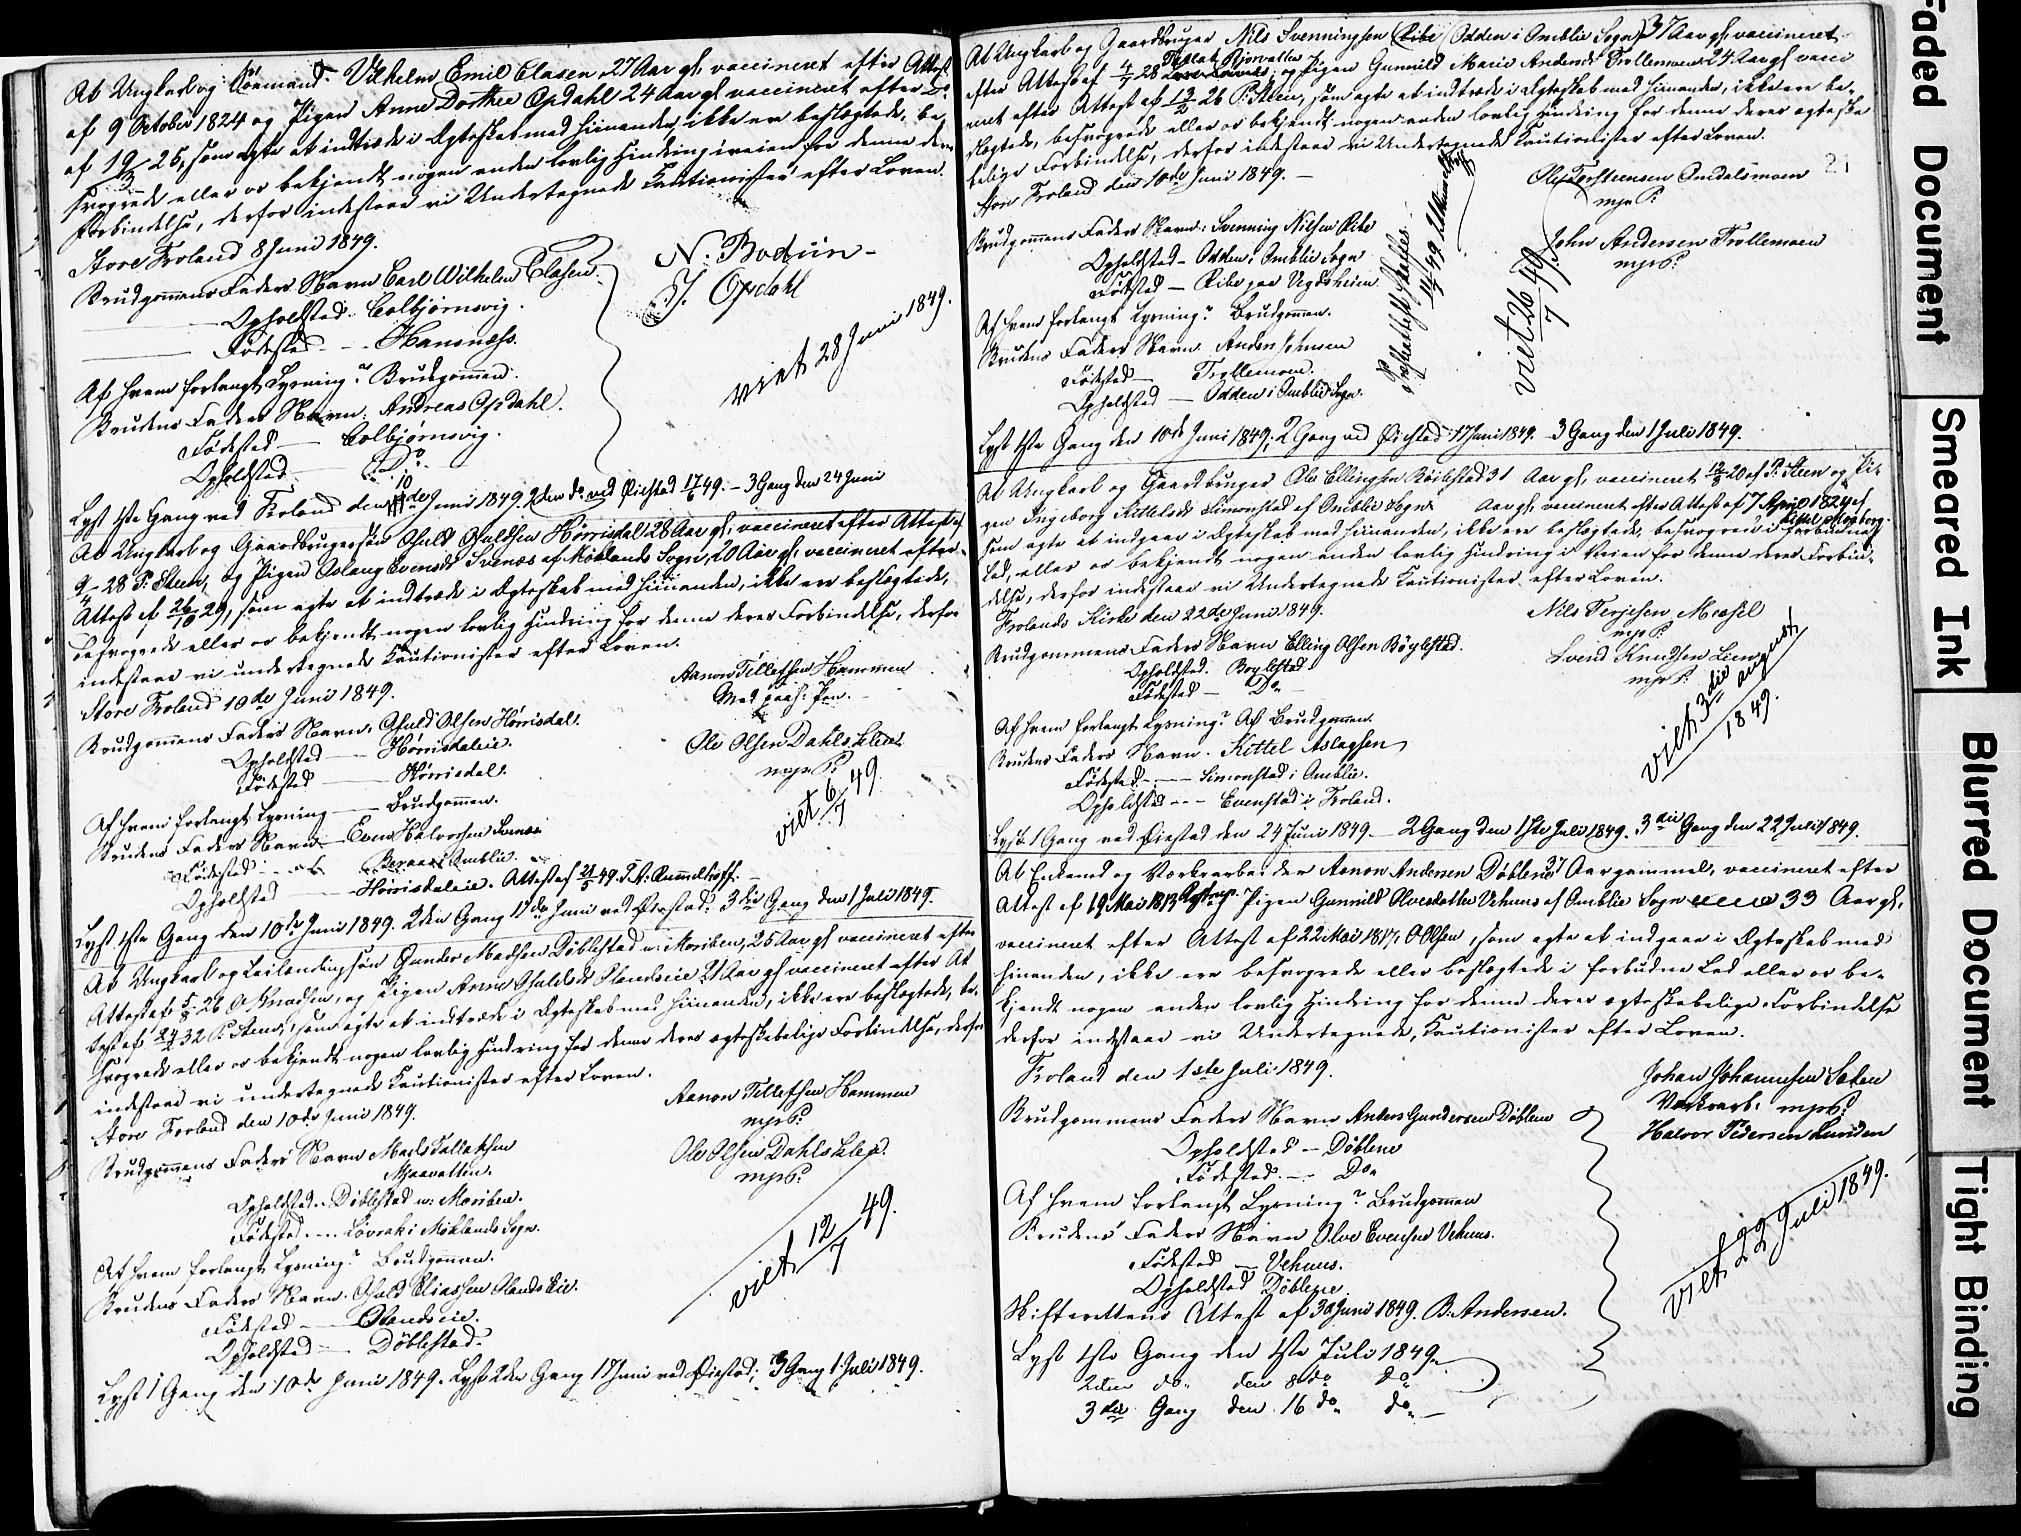 At Ungkarl og Sømand Vilhelm Emil Clasen, 27 Aar gl, vaccineret efter Attest
af 9 October 1824 og Pigen Anne Dorthee Opdahl 24 Aar gl vaccineret efter Do
af 19/3 25, som agte at indtræde i Ægteskab med hinanden ikke ere beslægtede, be-
svogrede eller os bekjendt nogen anden lovlig Hindring i veien for denne deres
Forbindelse, derfor indestaae vi Undertegnede Kautionister efter Loven.
Store Froland 8 Juni 1849.
N. Bodün
Brudgommens Faders Navn Carl Wilhelm Clasen.
J. Opdahl
Opholdsted Colbjørnsvig.
Fødested - Hansnæss.
viet 28 Juni 1849.
Af hvem forlangt Lysning? Brudgommen.
Brudens Faders Navn: Andreas Opdahl.
Fødested — Colbjørnsvig.
Opholdsted Do.
Lyst 1ste Gang ved Froland den 10de Juni 1849. 2den do ved Øiestad 17/6 49. - 3 Gang den 24 Juni
At Ungkarl og Gaardbrugersøn Osuld Osuldsen Hørrisdal 28 Aar gl, vaccineret efter Attest af
9/4 28 P. Steen, og Pigen Aslaug Evensdr Svenæs af Møklands Sogn, 20 Aar gl, vaccineret efter
Attest af 26/10 29, som agte at indtræde i Ægteskab med hinanden, ikke ere beslægtede,
besvogrede eller os bekjendt nogen lovlig Hindring for denne deres Forbindelse, derfor
indestaae vi undertegnede Kautionister efter Loven.
Store Froland 10de Juni 1849.
Aanon Tellefsen Hammen
Med paah. Pen.
Brudgommens Faders Navn. Osuld Olsen Hørrisdal.
Ole Olsen Dahlsklev
Opholdsted — Hørrisdaleie.
m p P:
Fødested — Hørrisdal.
viet 6/7 49.
Af hvem forlangt Lysning — Brudgommen.
Brudens Faders Navn — Even Halvorsen Svenæs
Fødested - i Omblie.
Opholdsted — Hørrisdaleie. Attest af 21/5 49. T. A. Rummelhoff.
Lyst 1ste Gang den 10de Juni 1849. 2den Gang 17de Juni ved Øiestad. 3die Gang den 1 Juli 1849.
At Ungkarl og Leilændingssøn Gunder Madsen Døblestad u: Moriben, 25 Aar gl vaccineret efter
Attest af 5/8 26 O. Knudsen, og Pigen Anne Osuldsdr Olandseie 21 Aar gl vaccineret efter At-
test af 24/4 32 P. Steen, som agte at indtræde i Ægteskab med hinanden, ikke ere beslægtede, be-
svogrede eller os bekjendt nogen lovlig Hindring for denne deres ægteskabelige Forbindelse, derfor
indestaae vi undertegnede Kautionister efter Loven.
Store Froland den 10de Juni 1849.
Aanon Tellefsen Hammen
m p P:
Brudgommens Faders Navn Mads Tallaksen
Mjaavatten.
Ole Olsen Dahlsklev.
m p P:
Opholdsted. Døblestad u: Moriben.
Fødested. — Løvrak i Møklands Sogn.
viet 12/7 49.
Af hvem forlangt Lysning? Brudgommen.
Brudens Faders Navn. Osuld Eliassen Olandseie.
Fødested — Olandseie.
Opholdsted — Døblestad.
Lyst 1 Gang den 10de Juni 1849. Lyst 2den Gang 17 Juni ved Øiestad; 3 Gang 1 Juli 1849.
At Ungkarl og Gaardbruger Nils Svenningsen (Ribe) Odden i Omblie Sogn 37 Aar gl, vaccineret
efter Attest af 4/7 28 og Pigen Gunnild Marie Andersdr Trollemoen 24 Aar gl vacci-
neret efter Attest af 13/2 26 P. Steen, som agte at indtræde i Ægteskab med hinanden, ikke ere be-
slægtede, besvogrede eller os bekjendt nogen anden lovlig Hindring for denne deres ægteska-
belige Forbindelse, derfor indestaae vi Undertegnede Kautionister efter Loven.
Store Froland den 10de Juni 1849.
Ole Torstensen Omdalsmoen
21
m p P:
Brudgommens Faders Navn: Svenning Nilsen Ribe
John Andersen Trollemoen
Opholdsted - Odden i Omblie Sogn
m p P:
Fødested — Ribe paa Vegusheien.
viet 26/7 49.
Af hvem forlangt Lysning? Brudgommen.
Brudens Faders Navn. Anders Johnsen
Fødested — Trollemoen.
Opholdsted — Odden i Omblie Sogn.
Lyst 1ste Gang den 10de Juni 1849; 2 Gang ved Øiestad 17 Juni 1849. 3 Gang den 1 Juli 1849.
At Ungkarl og Gaardbruger Ole Ellingsen Bøilestad 31 Aar gl, vaccineret 12/8 20 af P. Steen og Pi-
gen Ingeborg Kittelsdr Simonstad af Omblie Sogn Aar gl, vaccineret efter Attest af 7 April 1824 af
som agte at indgaae i Ægteskab med hinanden, ikke ere beslægtede, besvogrede i forbudne
Led, eller os bekjendt nogen anden lovlig Hindring i Veien for denne deres Forbin-
delse, derfor indestaae vi Undertegnede Kautionister efter Loven.
Frolands Kirke den 22de Juni 1849.
Nils Terjesen Messel
m p P:
Brudgommens Faders Navn Elling Olsen Bøylestad.
Svend Knudsen Lien
Opholdsted. Boylestad
m p P:
Fødested — Do
viet 3die august 1849.
Af hvem forlangt Lysning? Af Brudgommen.
Brudens Faders Navn. Kittel Aslagsen
Fødested — Simonstad i Omblie.
Opholdsted - Evenstad i Froland.
Lyst 1 Gang ved Øiestad den 24 Juni 1849 — 2 Gang den 1ste Juli 1849. 3die Gang den 22 Juli 1849.
At Enkemd og Værksarbeider Aanon Andersen Døblene 37 Aar gammel, vaccineret efter
Attest af 19 Mai 1813 og Pigen Gunnild Olvesdatter Vehuus af Omblie Sogn 33 Aar gl,
vaccineret efter Attest af 22 Mai 1817, O Olsen, som agte at indgaae i Ægteskab med
hinanden, ikke ere besvogrede eller beslægtede i forbudne Led eller os be-
kjendt nogen anden lovlig Hindring for denne deres ægteskabelige Forbindelse
derfor indestaae vi Undertegnede, Kautionister efter Loven.
Froland den 1ste Juli 1849.
Johan Johannesen Sæten
Værksarb. m p P:
Brudgommens Faders Navn Anders Gundersen Døblene
Halvor Pedersen Lunden
Opholdsted — Døblene
Fødested. — Do
Af hvem forlangt Lysning? Brudgommen
Brudens Faders Navn Olve Evensen Vehuus.
viet 22 Juli 1849.
Fødested — Vehuus.
Opholdsted Døblene
Skifterettens Attest af 30 Juni 1849. B. Andersen.
Lyst 1ste Gang den 1ste Juli 1849.
2den do den 8de do
3die Gang den 16 do do
Faded Document
Smeared Ink
Blurred Document
Tight Binding